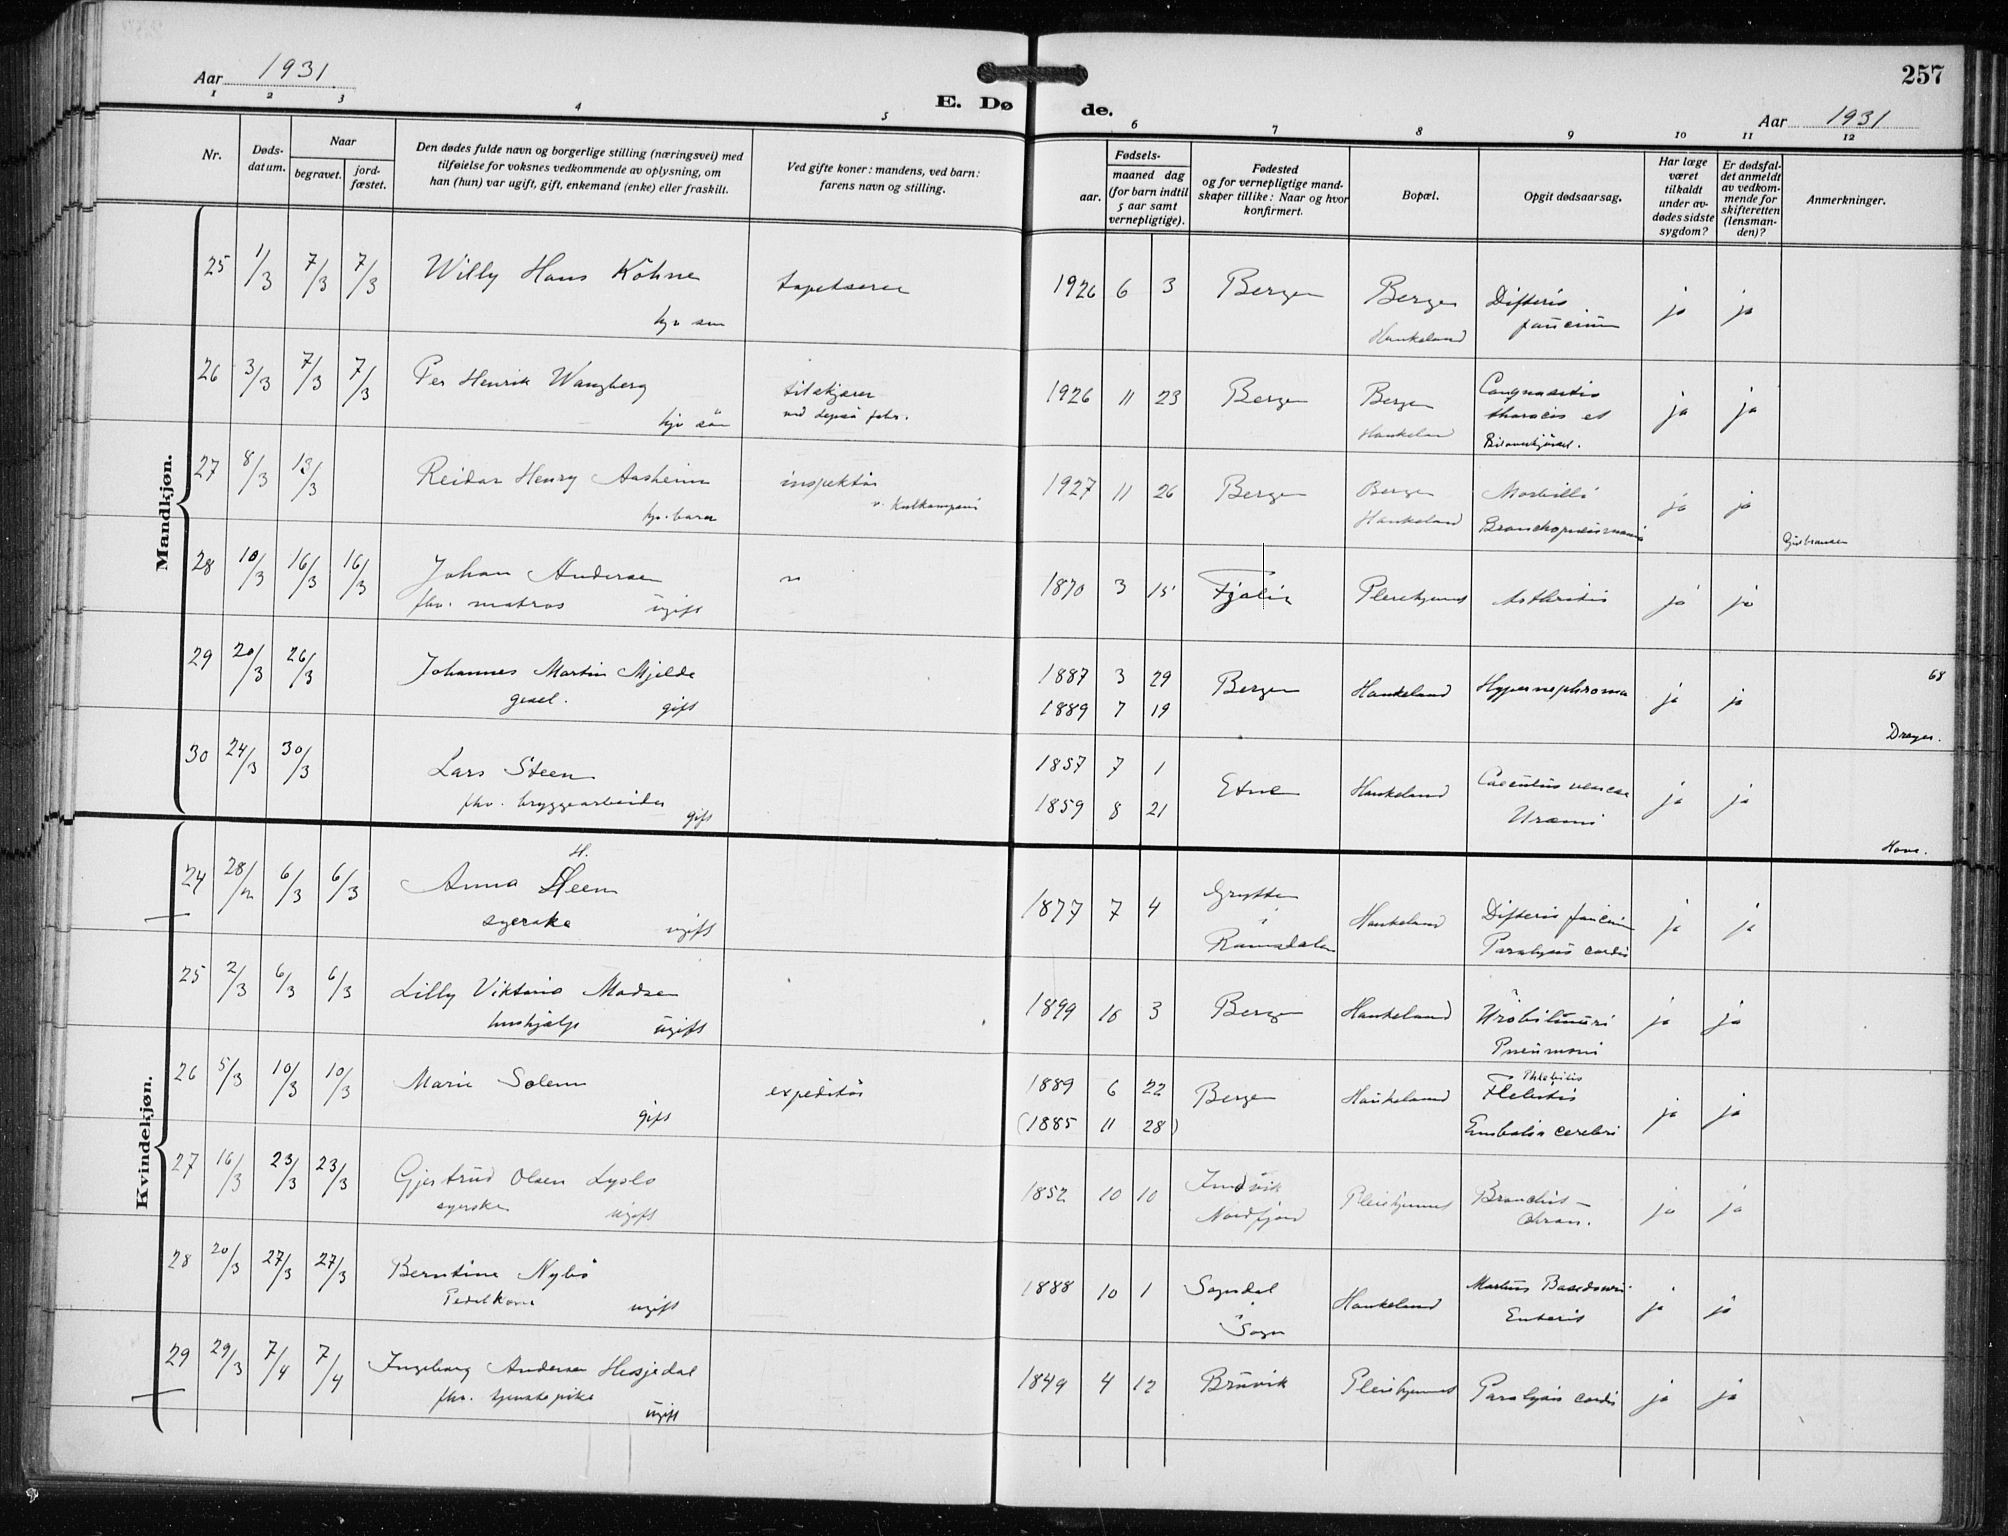 257
Aar 1931
E. Dø de.
Aar 1931
1 2 3 4 5 6 7 8 9 10 11 12
Nr.
Døds-
datum.
Naar
begravet.
jord-
fæstet.
Den dødes fulde navn og borgerlige stilling (næringsvei) med
tilføielse for voksnes vedkommende av oplysning, om
han (hun) var ugift, gift, enkemand (enke) eller fraskilt.
Ved gifte koner: mandens, ved barn:
farens navn og stilling.
Fødsels-
aar.
maaned dag
(for barn indtil
5 aar samt
vernepligtige).
Fødested
og for vernepligtige mand-
skaper tillike: Naar og hvor
konfirmert.
Bopæl.
Opgit dødsaarsag.
Har læge
været
tilkaldt
under av-
dødes sidste
sygdom?
Er dødsfal-
det anmeldt
av vedkom-
mende for
skifteretten
(lensman-
den)?
Anmerkninger.
Mandkjøn.
25 1/3 7/3 7/3 Willy Hans Köhne tapetserer 1926 6 3 Bergen Bergen Difteris ja ja
Haukeland faucium
26 3/3 7/3 7/3 Per Henrik Wangberg tilskjærer 1926 11 23 Bergen Bergen ja ja
kjv sön Haukeland thoracis et
27 8/3 13/3 Reidar Henry Aasheim inspektör 1927 11 26 Bergen Bergen Morbilli ja ja
v. Kulkompani Haukeland Bronchopneumoni
28 10/3 16/3 16/3 Johan Andersen 1870 3 15 Fjaler Pleiehjemmet ja ja
fhv. matros ugift
29 20/3 26/3 Johannes Martin Mjelde 1887 3 29 Bergen Haukeland Hypernephroma ja ja 68
gesel. gift 1889 7 19
Dreyer.
30 24/3 30/3 Lars Steen 1857 7 1 Etne Haukeland ja ja
fhv. bryggearbeider gift 1859 8 21 Uræmi
Hove.
Kvindekjøn.
H.
24 28/2 6/3 6/3 Anna Heen 1877 7 4 Grytten i Romsdalen Haukeland Difteris faucium ja ja
syerske ugift Paralysis cordis
25 2/3 6/3 6/3 Lilly Viktoria Madsen 1899 10 3 Bergen Haukeland Urobilinuri ja ja
hushjælp ugift Pneumoni
26 5/3 10/3 10/3 Marie Solem expeditör 1889 6 22 Bergen Haukeland Flebitis ja ja
gift (1885 11 28) Embolia cerebri
27 16/3 23/3 23/3 Gjertrud Olsen Lyslo 1852 10 10 Indvik Pleiehjemmet Bronchit ja ja
syerske ugift Nordfjord chron.
28 20/3 27/3 27/3 Berntine Nybö 1888 10 1 Sogndal Haukeland Morbus Basedowii ja ja
ugift i Sogn Enterit
29 29/3 7/4 7/4 Ingeborg Andersen Hesjedal 1849 4 12 Bruvik Pleiehjemmet Paralysis cordis ja ja
fhv. tjenestepike ugift